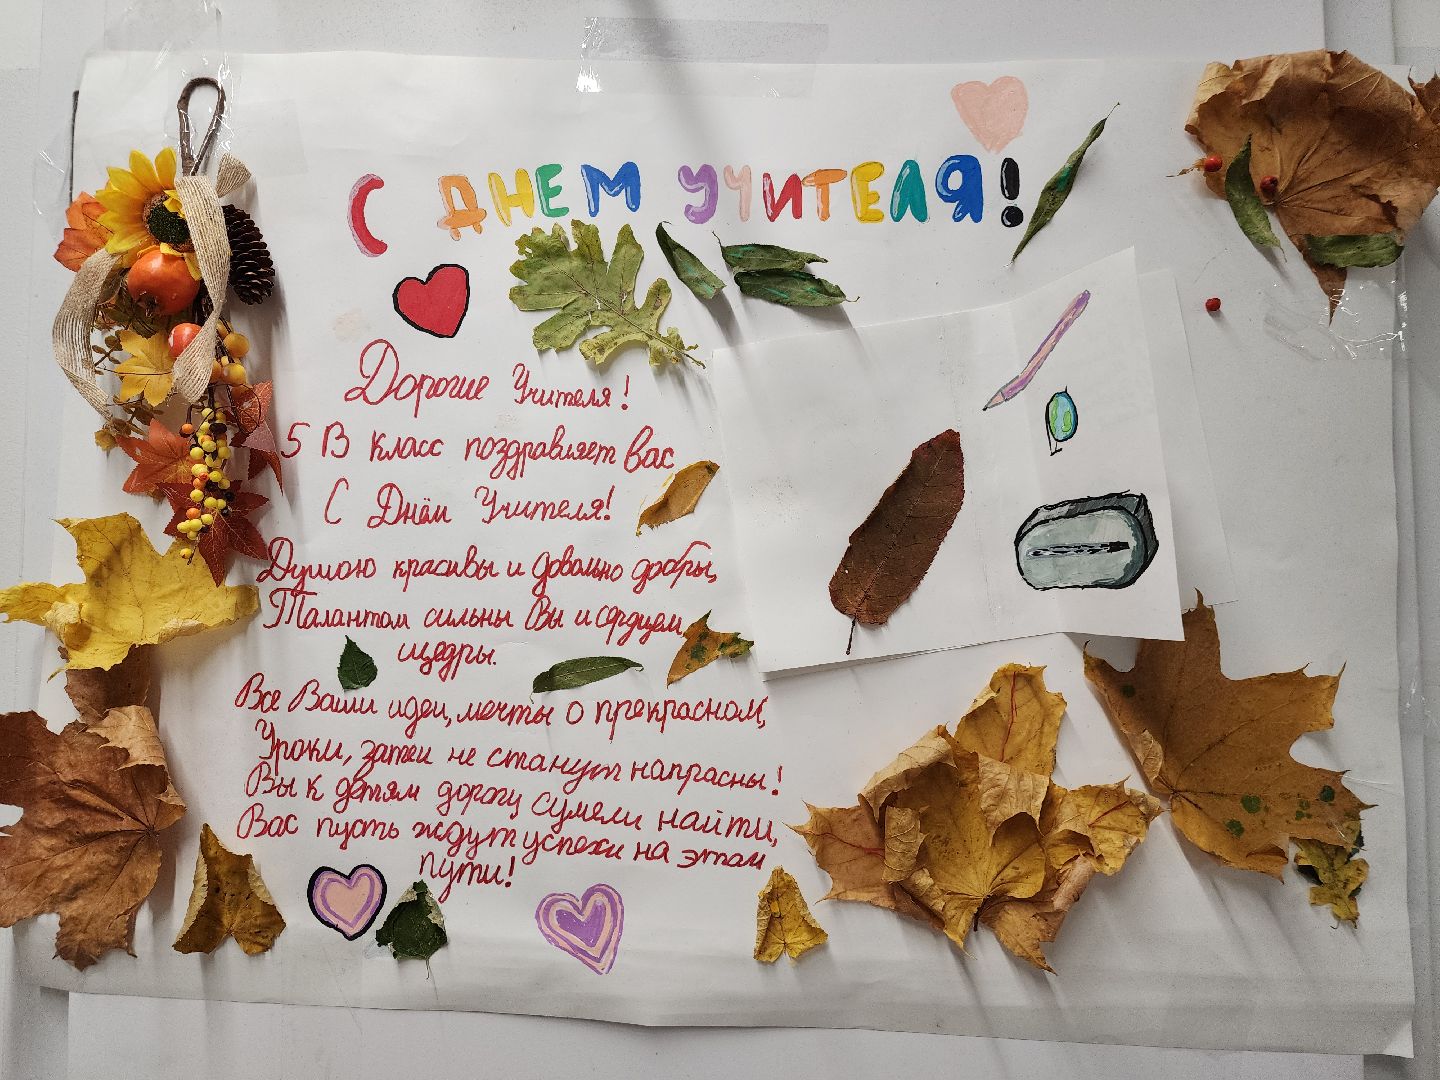 С ДНЕМ УЧИТЕЛЯ!
Дорогие Учителя!
5 В класс поздравляет вас
С Днём Учителя!
Душою красивы и довольно добры,
Талантом сильны Вы и сердцем
щедры.
Все Ваши идеи, мечты о прекрасном,
Уроки, затеи не станут напрасны!
Вы к детям дорогу сумели найти,
Вас пусть ждут успехи на этом
пути!